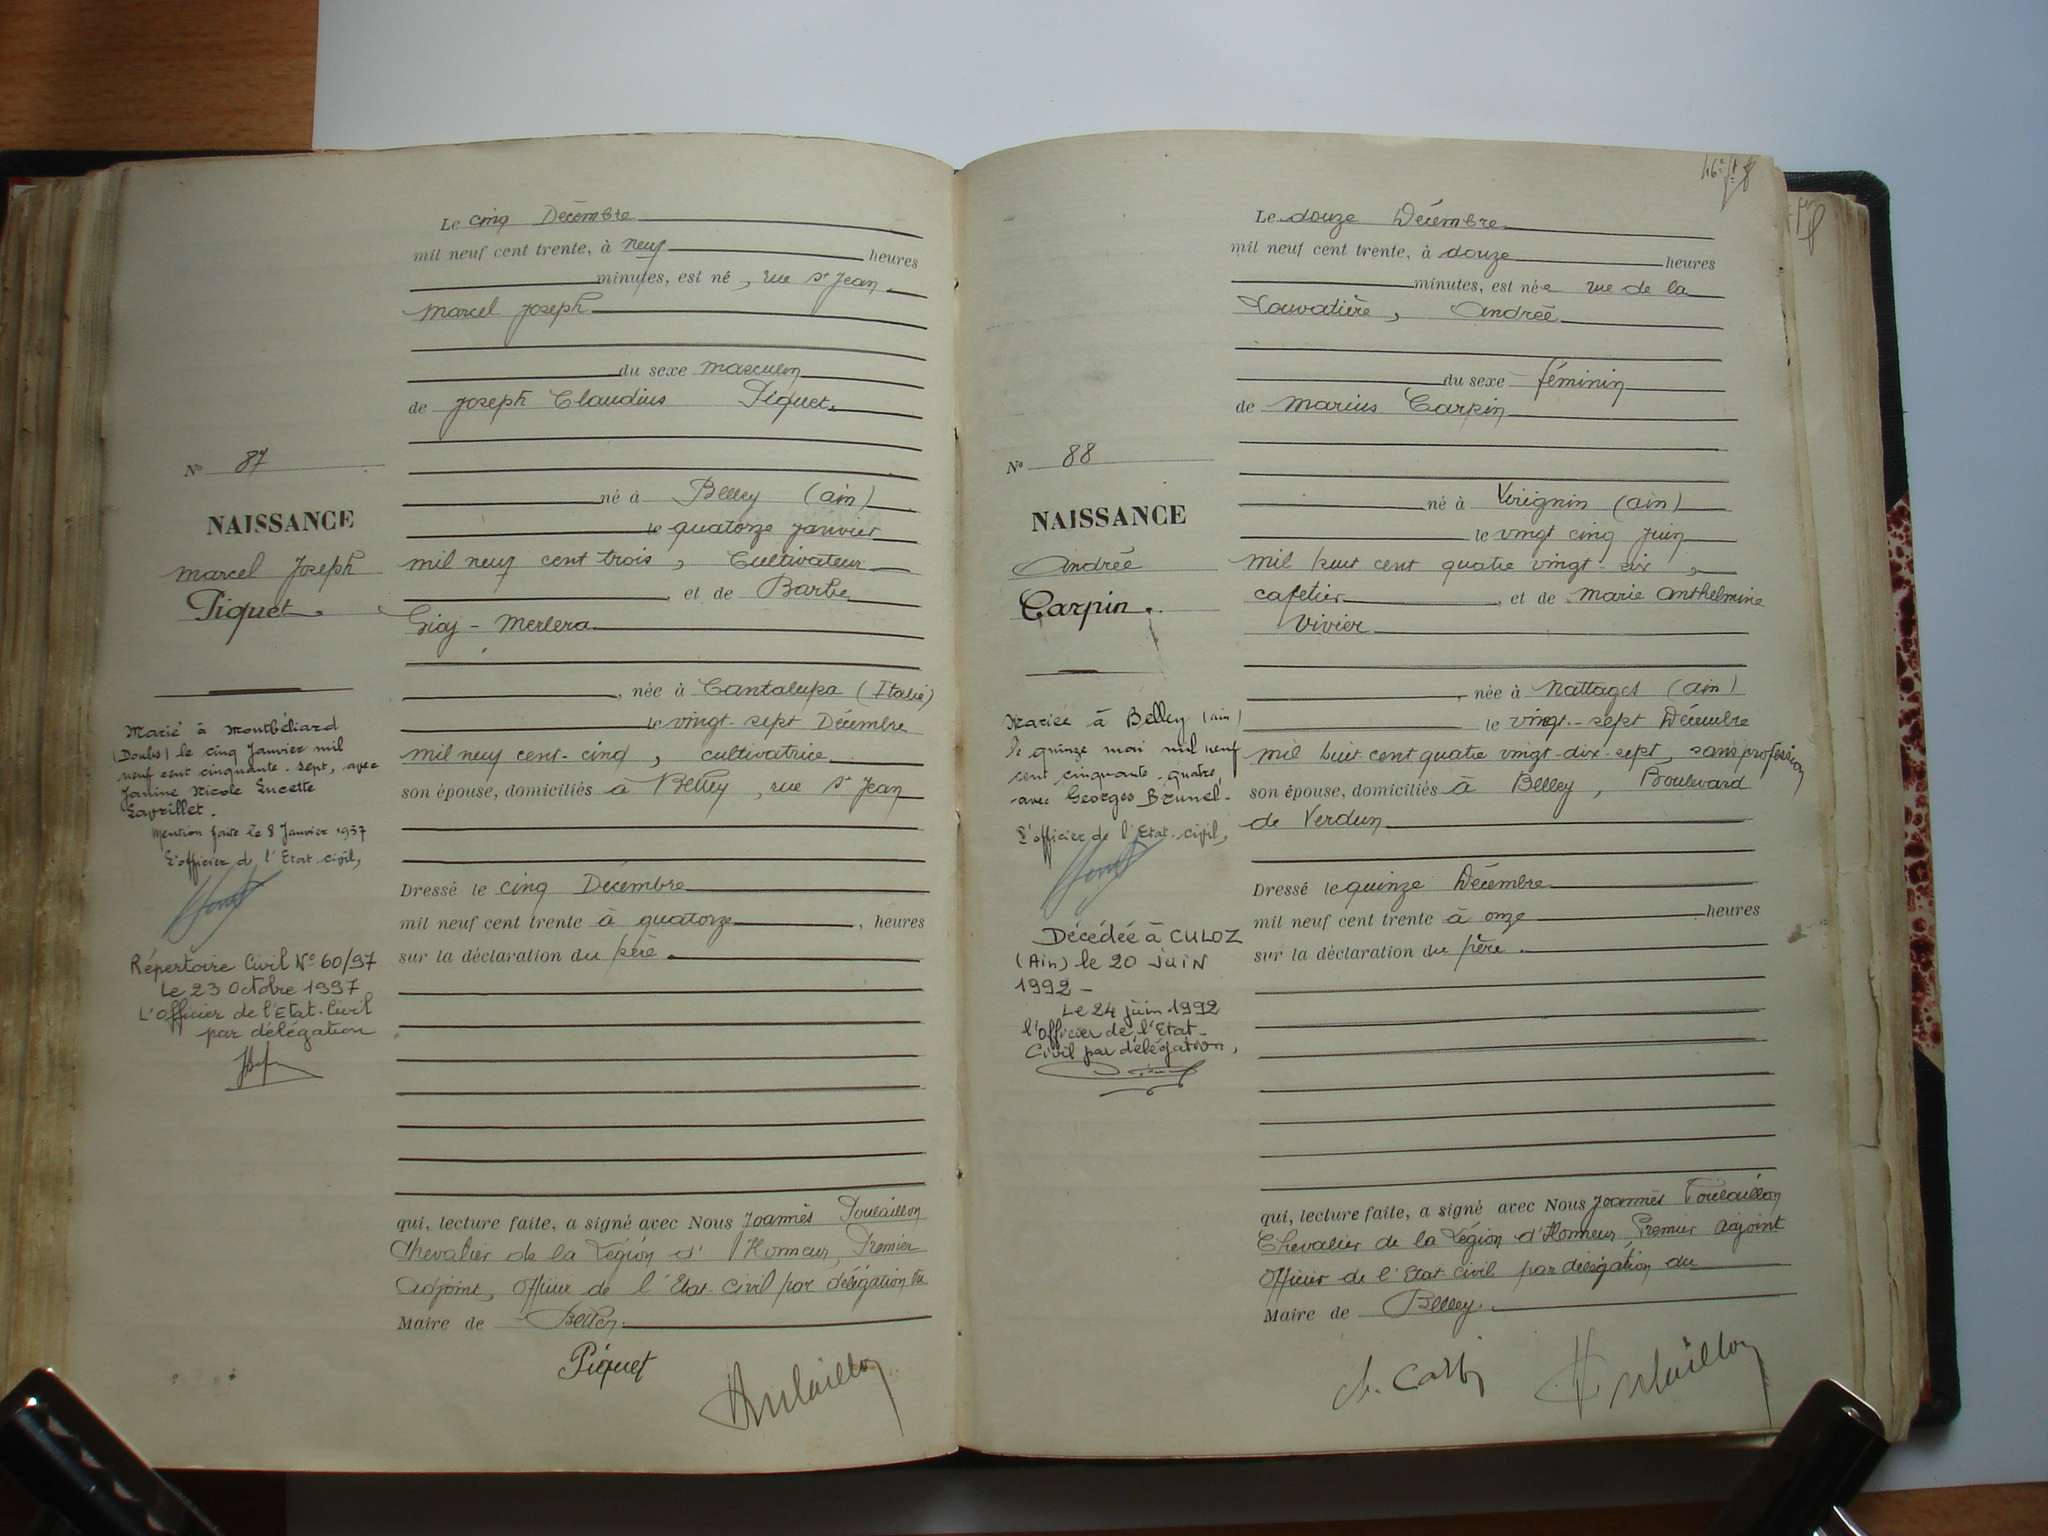 Le cinq Décembre
mil neuf cent trente, à neuf heures
minutes, est né, rue St Jean
Marcel Joseph
du sexe masculin
de Joseph Claudius Piquet
N° 87
né à Belley (ain)
NAISSANCE
le quatorze janvier
Marcel Joseph
mil neuf cent trois, Cultivateur
Piquet.
, et de Barbe
Gioj - Merlera
, née à Cantalupa (Italie)
le vingt-sept Décembre
mil neuf cent-cinq, cultivatrice
son épouse, domiciliés à Belley, rue St Jean
Marié à Montbéliard
(Doubs) le cinq Janvier mil
neuf cent cinquante-sept, avec
Janine Nicole Lucette
Lavrillet.
Mention faite le 8 Janvier 1957
L'officier de l'Etat-civil,
Dressé le cinq Décembre
mil neuf cent trente à quatorze, heures
sur la déclaration du père.
Répertoire Civil N° 60/97
Le 23 Octobre 1997
L'Officier de l'Etat-Civil
par délégation
qui, lecture faite, a signé avec Nous Joannès Poulaillon
Chevalier de la Légion d'Honneur, Premier
adjoint, officier de l'Etat-Civil par délégation du
Maire de Belley.
Piquet
Poulaillon
Le douze Décembre
mil neuf cent trente, à douze heures
minutes, est née rue de la
Louvatière, Andrée
du sexe féminin
de Marius Carpin
N° 88
né à Virignin (ain)
NAISSANCE
le vingt cinq juin
Andrée
mil huit cent quatre vingt-six,
Carpin.
cafetier, et de Marie Anthelmine
Vivier
, née à Nattages (ain)
le vingt-sept Décembre
mil huit cent quatre vingt-dix-sept, sans profession
son épouse, domiciliés à Belley, Boulevard
de Verdun
Mariée à Belley (Ain)
le quinze mai mil neuf
cent cinquante-quatre,
avec Georges Brunel.
L'officier de l'Etat-civil,
Dressé le quinze Décembre
mil neuf cent trente à onze heures
sur la déclaration du père.
Décédée à CULOZ
(Ain) le 20 JUIN
1992 -
Le 24 juin 1992
l'Officier de l'Etat-
Civil par délégation,
qui, lecture faite, a signé avec Nous Joannès Poulaillon
Chevalier de la Légion d'Honneur, Premier adjoint
Officier de l'Etat-Civil par délégation du
Maire de Belley.
Poulaillon